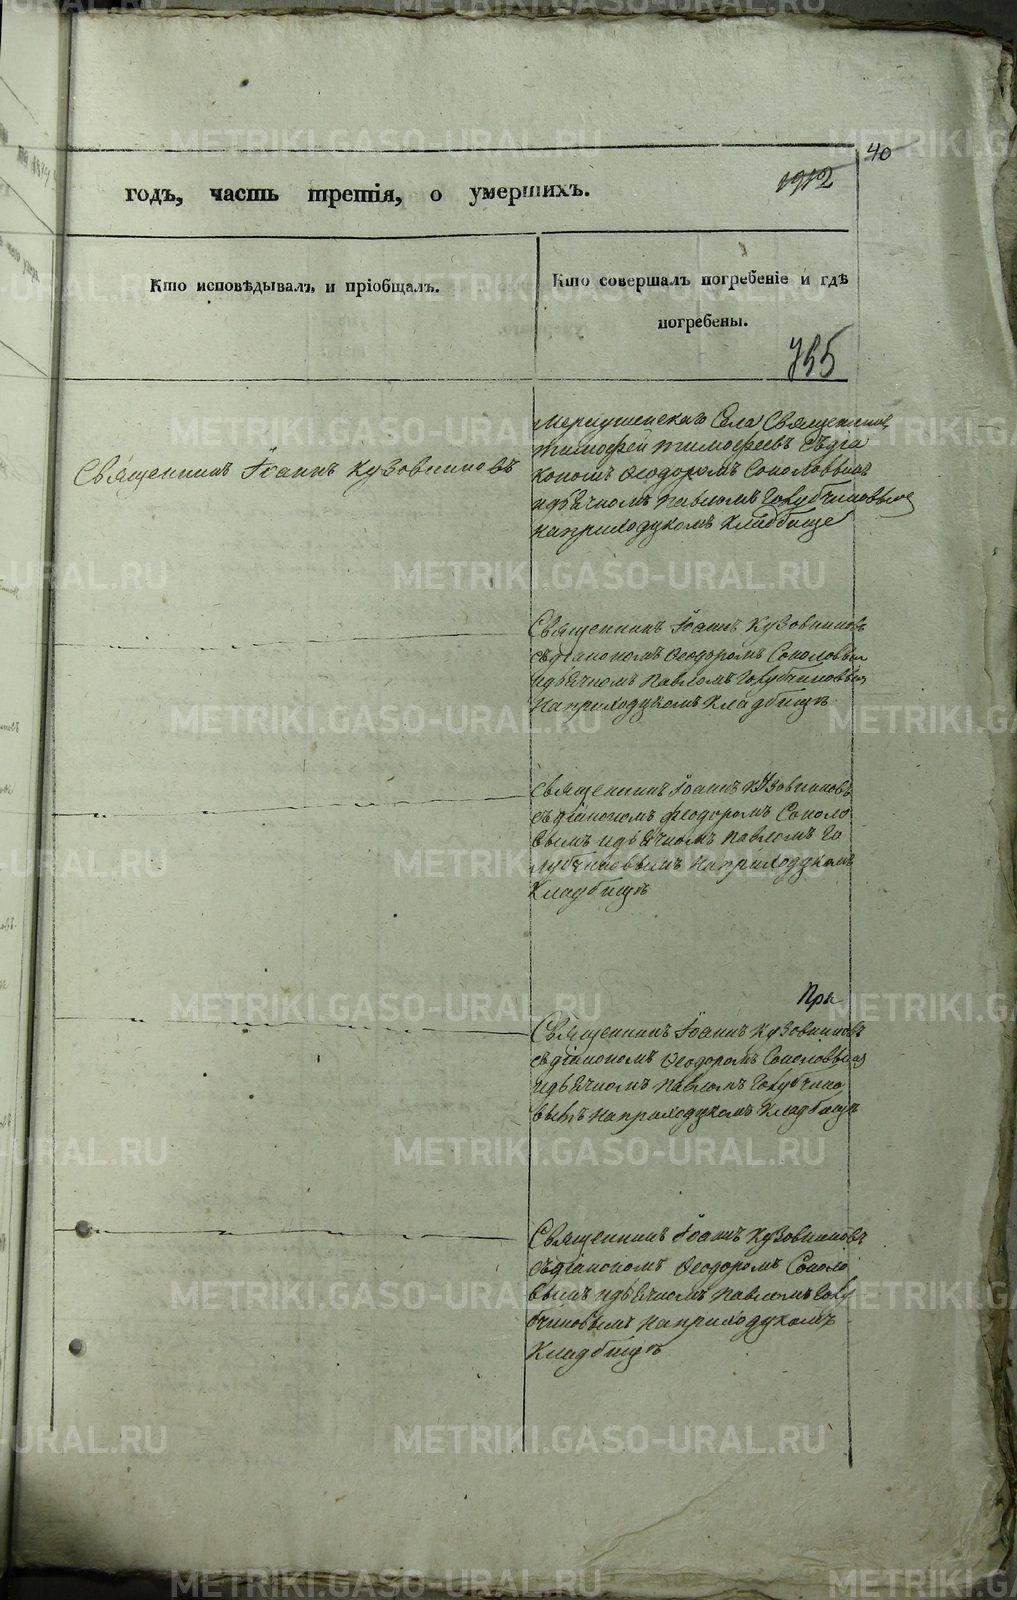 40
годъ, часть третія, о умершихъ.
1912
Кто исповѣдывалъ и пріобщалъ.
Кто совершалъ погребеніе и гдѣ
погребены.
755
Священникъ Іоаннъ Кузовниковъ
Села Священник
Тимофей Тимофеевъ съдіа
кономъ Ѳеодоромъ Соколовым
идьячкомъ Павломъ Голубчиковым
наприходскомъ Кладбище
Священникъ Іоаннъ Кузовниковъ
съдіакономъ Ѳеодоромъ Соколовым
идьячкомъ Павломъ Голубчиковым
Наприходскомъ Кладбищѣ
Священникъ Іоаннъ Кузовниковъ
съдіакономъ Феодоромъ Соколо
вымъ идьячкомъ Павломъ Го
лубчиковымъ Наприходскомъ
Кладбищѣ
При
Священникъ Іоаннъ Кузовниковъ
съдіакономъ Ѳеодоромъ Соколовым
идьячкомъ Павломъ Голубчико
вымъ Наприходскомъ Кладбищѣ
Священникъ Іоаннъ Кузовниковъ
съдіакономъ Ѳеодоромъ Соколо
вымъ идьячкомъ Павломъ Голу
бчиковымъ Наприходскомъ
Кладбищѣ
METRIKI.GASO-URAL.RU